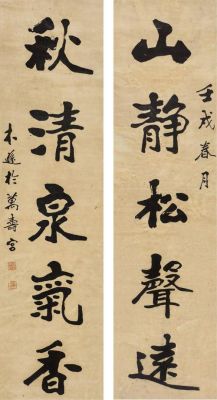 壬戌春月
山静松聲遠
秋清泉氣香
木遜於萬壽宮